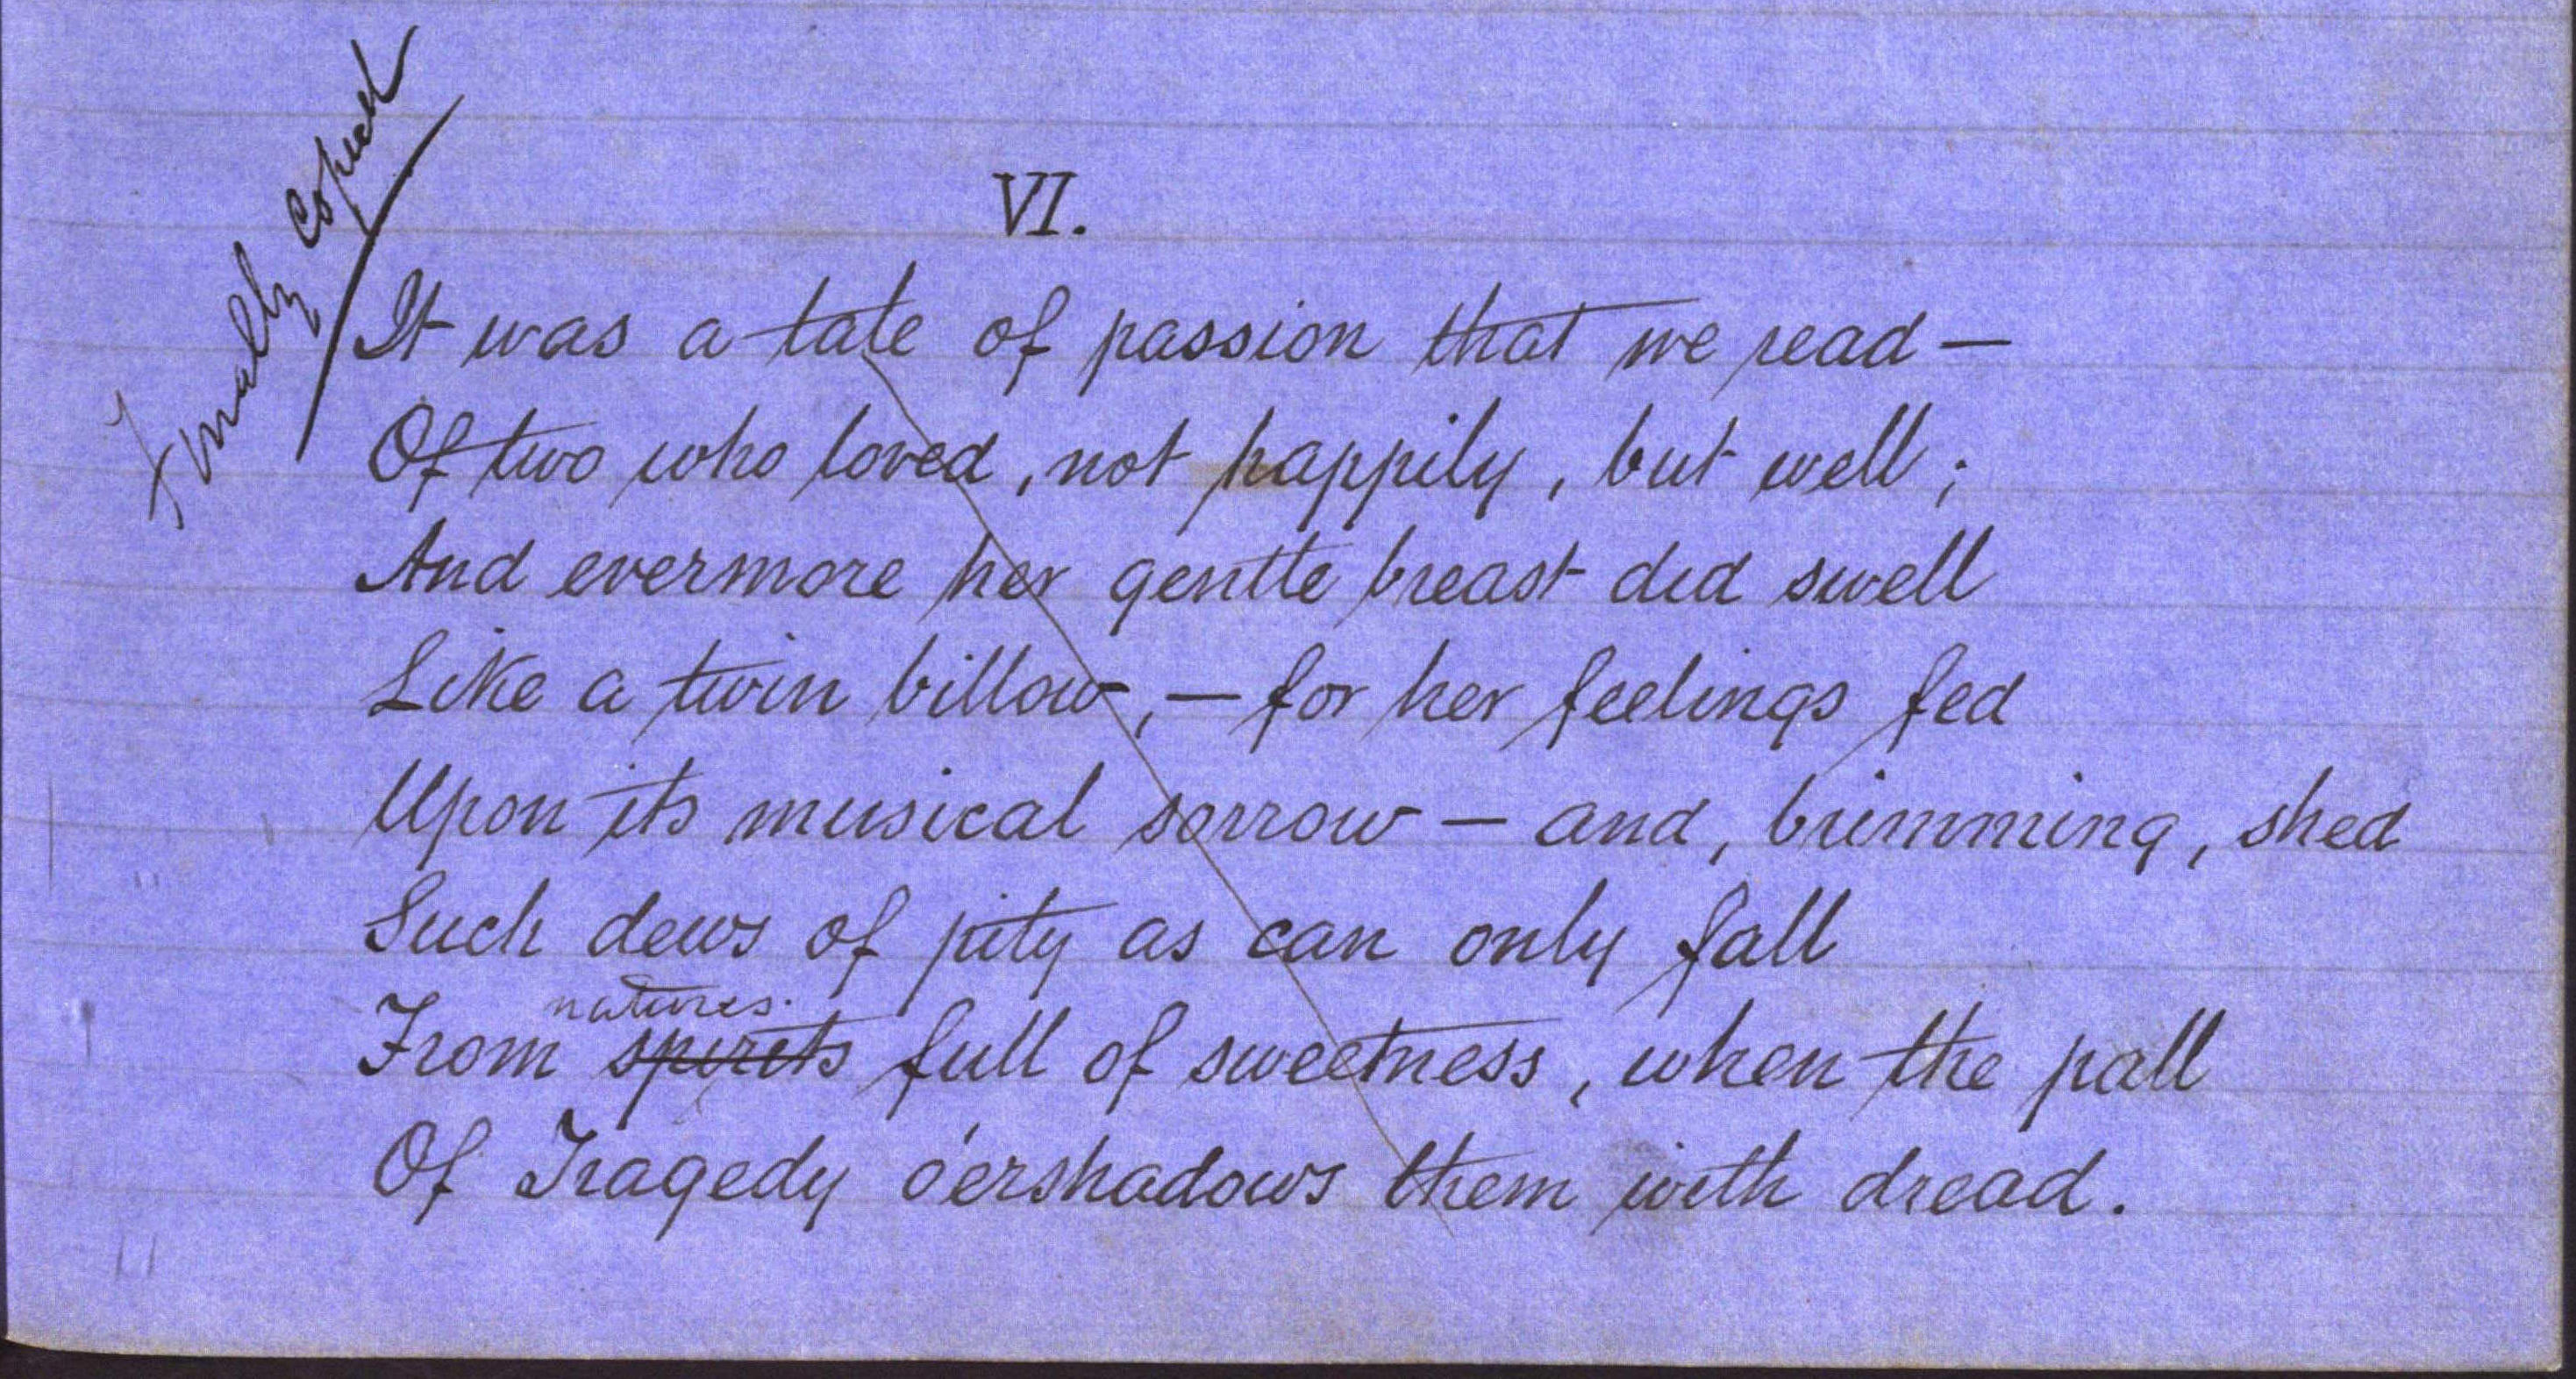 Finally Copied
VI.
It was a tale of passion that we read —
Of two who loved, not happily, but well;
And evermore her gentle breast did swell
Like a twin billow, — for her feelings fed
Upon its musical sorrow — and, brimming, shed
Such dews of pity as can only fall
natures
From spirits full of sweetness, when the pall
Of Tragedy o'ershadows them with dread.